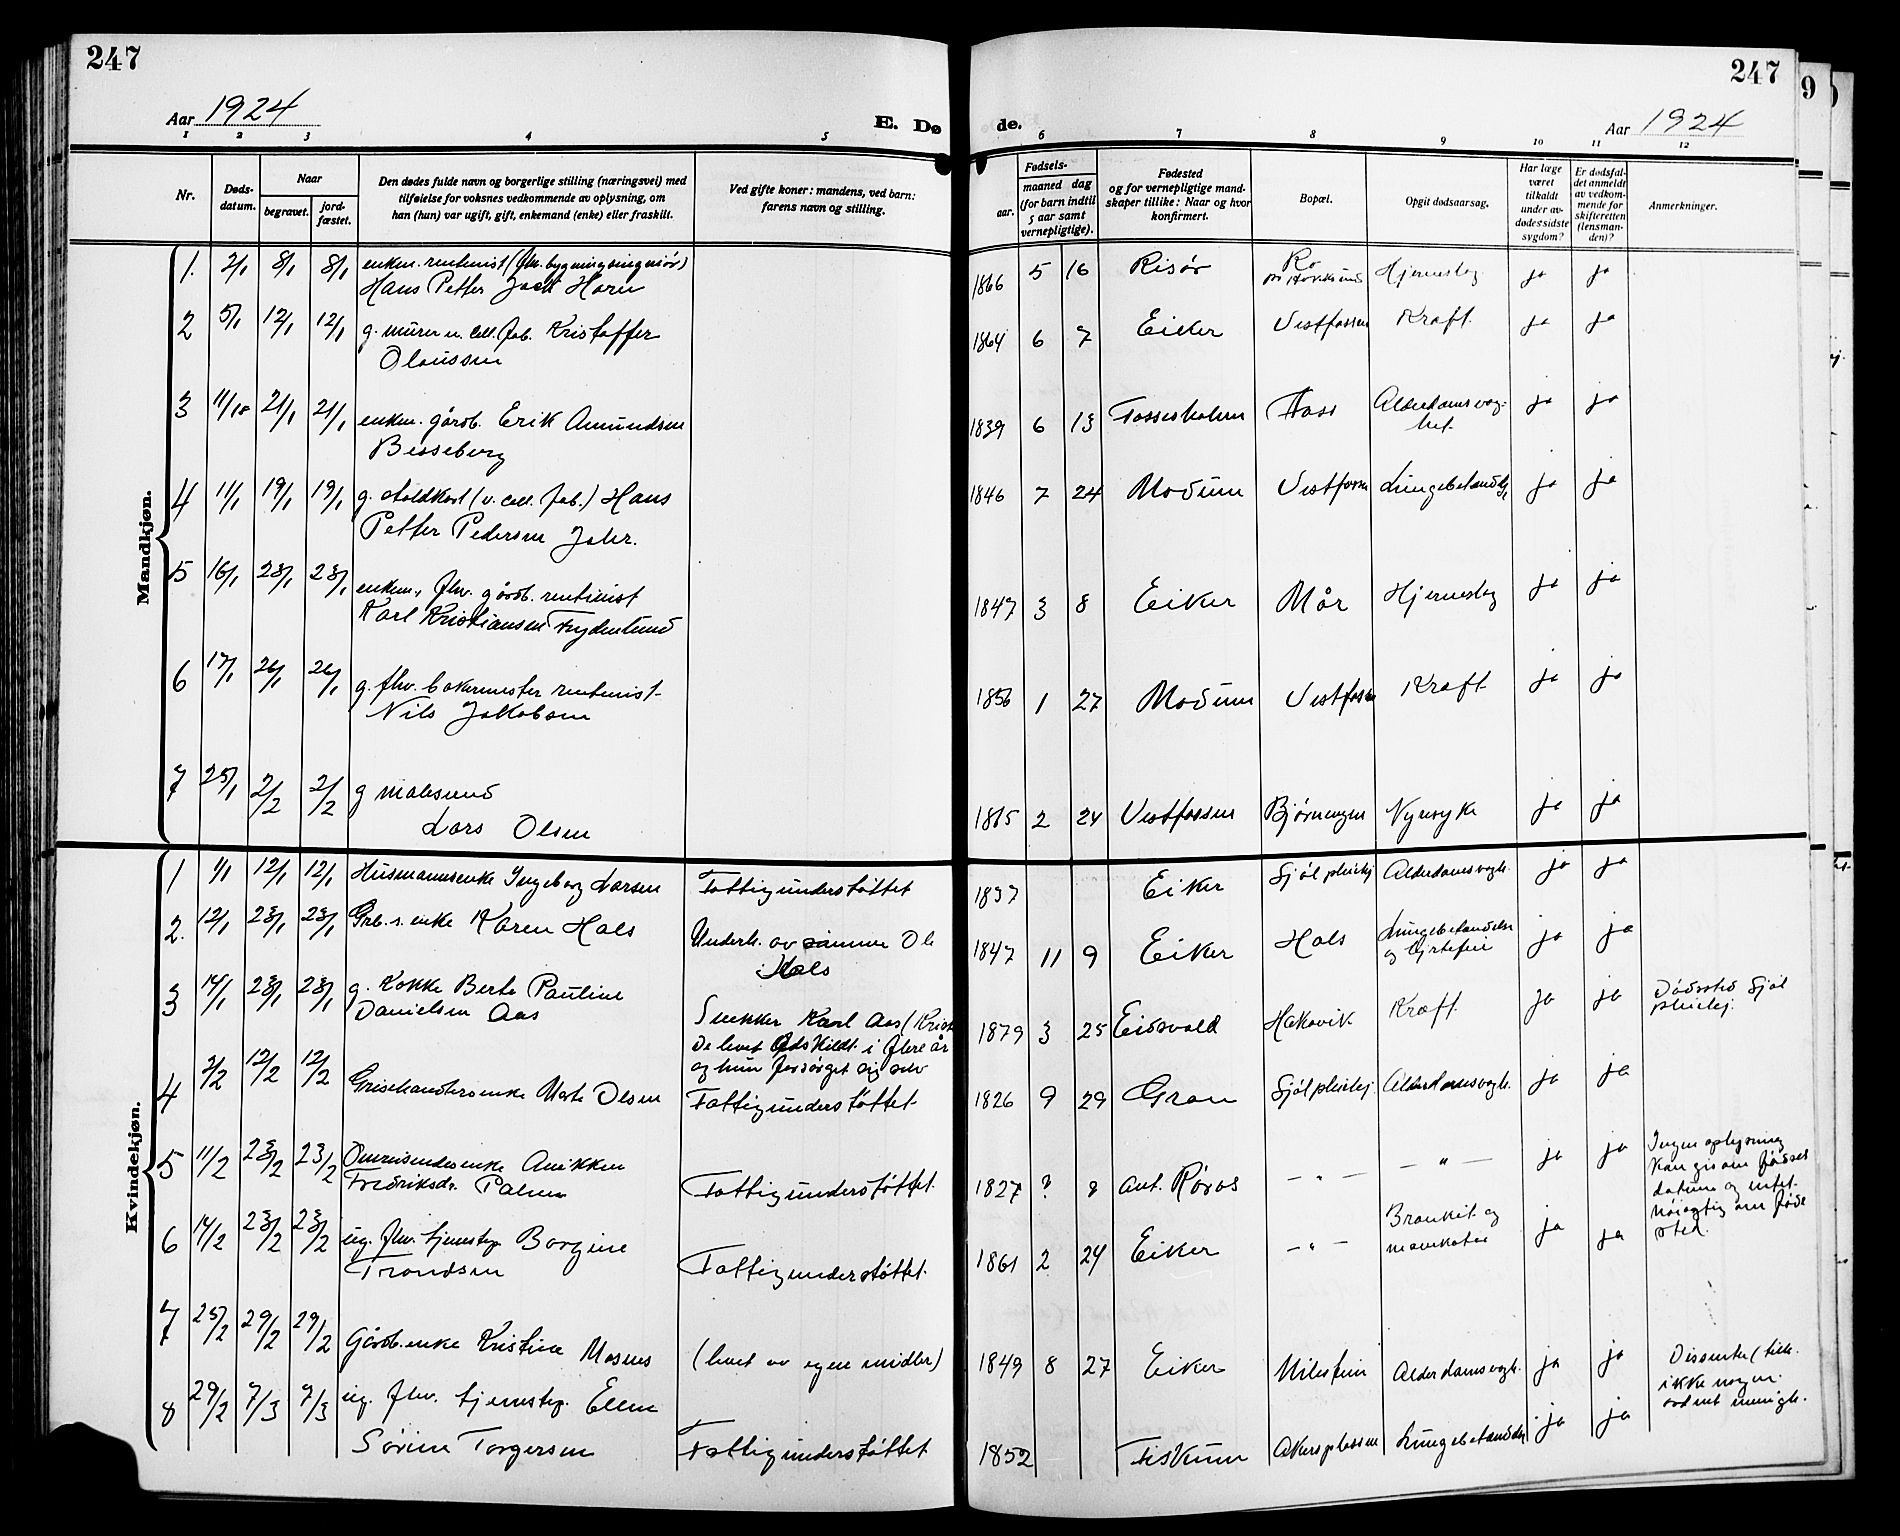 247
Aar 1924
E. Dø
1 2 3 4 5
Nr.
Døds-
datum.
Naar
begravet.
jord-
fæstet.
Den dødes fulde navn og borgerlige stilling (næringsvei) med
tilføielse for voksnes vedkommende av oplysning, om
han (hun) var ugift, gift, enkemand (enke) eller fraskilt.
Ved gifte koner: mandens, ved barn:
farens navn og stilling.
Mandkjøn.
1. 2/1 8/1 8/1 enkem. rentenist (fhv. bygningsingeniør)
Hans Petter Horn
2 5/1 12/1 12/1 g. murer v. cell. fab. Kristoffer
Olaussen
3 11/1 21/1 21/1 enkem. gårdb. Erik Amundsen
Besseberg
4 11/1 19/1 19/1 g. staldkarl (v. cell. fab.) Hans
Petter Pedersen
5 16/1 23/1 23/1 enkem., fhv. gårdb. rentenist
Karl Kristiansen Frydenlund
6 17/1 26/1 26/1 g. fhv. bakermester rentenist
Nils Jakobsen
7 25/1 2/2 2/2 g
Lars Olsen
Kvindekjøn.
1 1/1 12/1 12/1 Husmannsenke Ingeborg Larsen Fattigunderstøttet
2. 12/1 23/1 23/1 Grb.s. enke Karen Hals Underh. av sønnen Ole
Hals
3 14/1 23/1 23/1 g. Kokke Berte Pauline
Danielsen Aas Snekker Karl Aas
De levet adskildt i flere år
og hun forsørget sig selv
4 2/2 12/2 12/2 Grisehandlersenke Marte Olsen Fattigunderstøttet
5 11/2 23/2 23/2 Omreisendesenke Anikken
Fredriksdr. Palma Fattigunderstøttet
6 14/2 23/2 23/2 ug. fhv. tjenestep. Borgine
Trondsen Fattigunderstøttet
7 25/2 29/2 29/2 Gårdb.enke Kristine Moenes (levet av egne midler)
8 29/2 7/3 7/3 ug. fhv. tjenestep. Ellen
Sørine Torgersen Fattigunderstøttet
247
de.
Aar 1924
6 7 8 9 10 11 12
Fødsels-
aar.
maaned dag
(for barn indtil
5 aar samt
vernepligtige).
Fødested
og for vernepligtige mand-
skaper tillike: Naar og hvor
konfirmert.
Bopæl.
Opgit dødsaarsag.
Har læge
været
tilkaldt
under av-
dødes sidste
sygdom?
Er dødsfal-
det anmeldt
av vedkom-
mende for
skifteretten
(lensman-
den)?
Anmerkninger.
1866 5 16 Risør Hjerneslag ja ja
1864 6 7 Eiker Vestfossen Kræft ja ja
1839 6 13 Fossesholm Alderdomssvag-
het ja ja
1846 7 24 Modum Vestfossen Lungebetændelse ja ja
1847 3 8 Eiker Mår Hjerneslag ja ja
1856 1 27 Modum Vestfossen Kræft ja ja
1865 2 24 Vestfossen Bjørnengen Nyresyke ja ja
1837 Eiker Sjøl pleiehj Alderdomssvagh. ja ja
1847 11 9 Eiker Hals Lungebetændelse
og hjertefeil ja ja
1879 3 25 Eidsvold Hakavik Kræft ja ja Dødssted Sjøl
pleiehj.
1826 9 29 Gran Sjøl pleiehj. Alderdomssvagh. ja ja
1827 ? ? ant. Røros — " — — " — ja ja Ingen oplysning
kan gis om fødsels
datum og intet
nøiagtig om føde
sted.
1861 2 24 Eiker — " — Bronkit og
ja ja
1849 8 27 Eiker Milesteen Alderdomssvagh. ja ja Dissenter (tilh.
ikke nogen
ordnet menigh.
1852 Fiskum Akersplassen Lungebetændelse ja ja
9